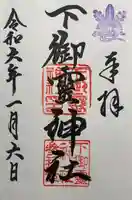 奉拝
下御靈神社
令和六年一月六日